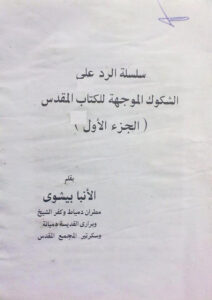 سلسلة الرد على
الشكوك الموجهة للكتاب المقدس
( الجزء الأول )
بقلم
الأنبا بيشوى
مطران دمياط وكفر الشيخ
وبرارى القديسة دميانة
وسكرتير المجمع المقدس